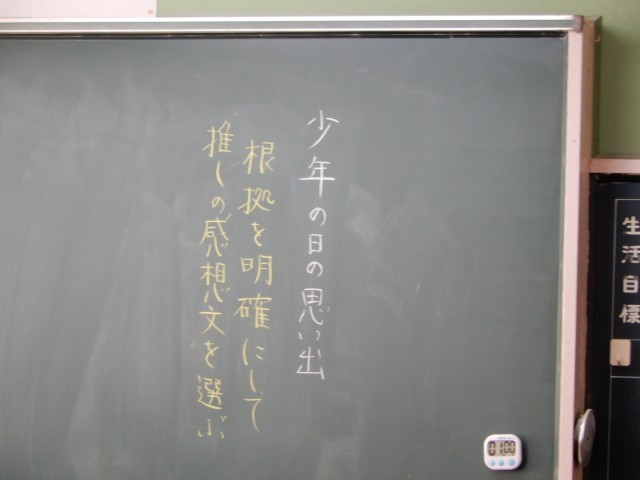 少年の日の思い出
根拠を明確にして
推しの感想文を選ぶ
生活目標
01:00